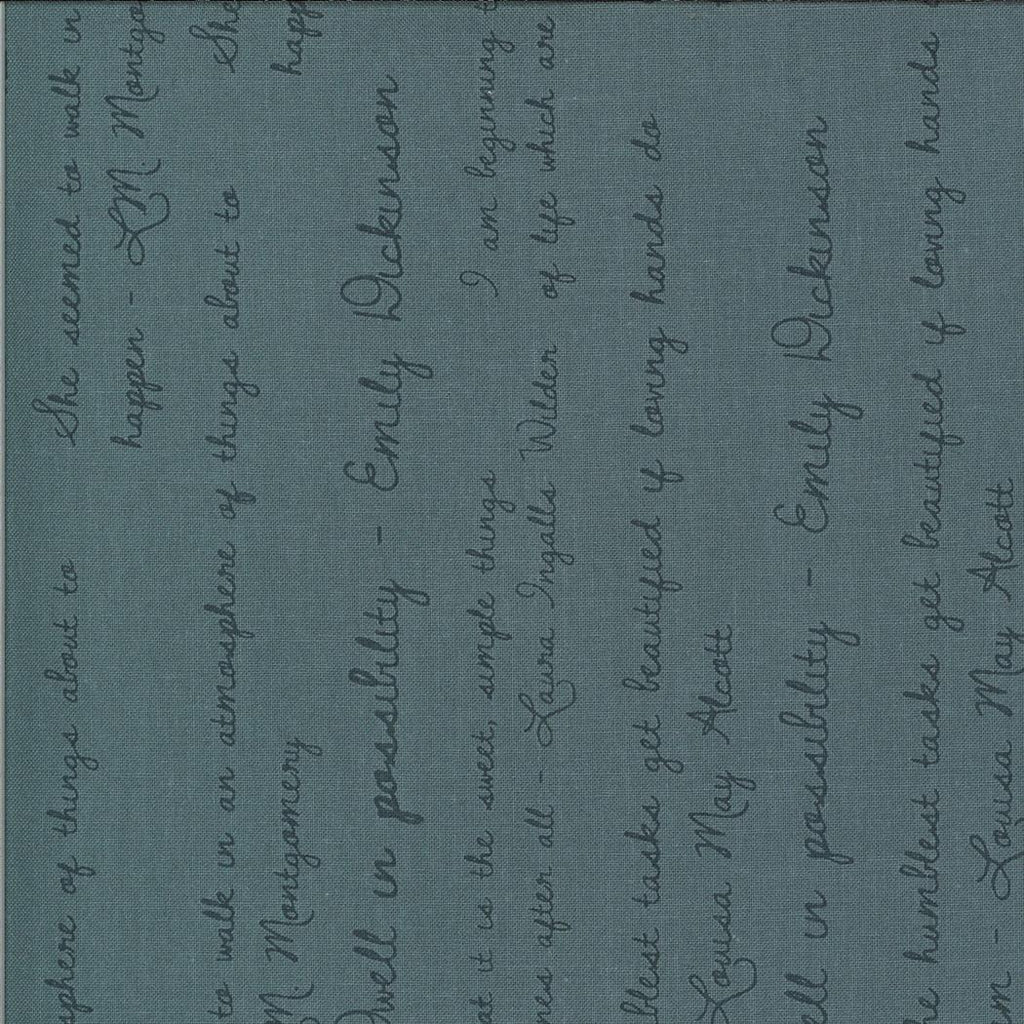 sphere of things about to She seemed to walk in
happen - L.M. Montgo
to walk in an atmosphere of things about to She
M. Montgomery happ
Dwell in possibility - Emily Dickinson
at it is the sweet, simple things I am beginning t
nes after all - Laura Ingalls Wilder of life which are
blest tasks get beautified if loving hands do
Louisa May Alcott
ell in possibility - Emily Dickinson
he humblest tasks get beautified if loving hands
m - Louisa May Alcott